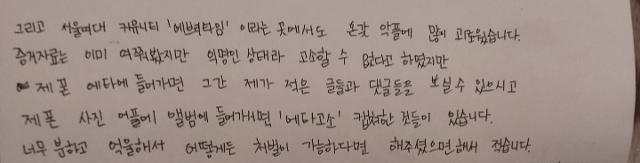 그리고 서울여대 커뮤니티 '에브리타임' 이라는 곳에서도 온갖 악플에 많이 괴로웠습니다.
증거자료는 이미 여쭤봤지만 익명인 상태라 고소할 수 없다고 하였지만
제 폰 에타에 들어가면 그간 제가 적은 글들과 댓글들을 보실 수 있으시고
제 폰 사진 어플에 앨범에 들어가시면 '에타고소' 캡쳐한 것들이 있습니다.
너무 분하고 억울해서 어떻게든 처벌이 가능하다면 해주셨으면 해서 적습니다.